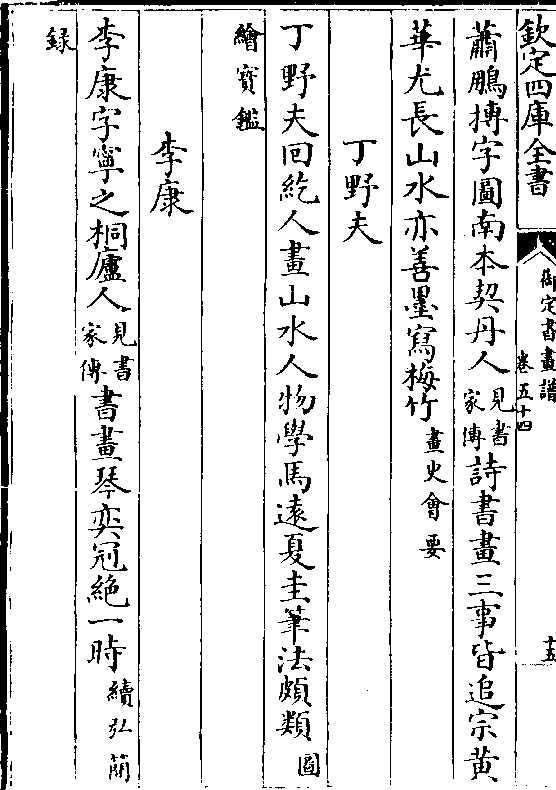 欽定四庫全書
御定書畫譜
卷五十四
十五
蕭鵬摶字圖南本契丹人見書家傳詩書畫三事皆追宗黄
華尤長山水亦善墨寫梅竹畫史會要
丁野夫
丁野夫回紇人畫山水人物學馬逺夏圭筆法頗類圖
繪寳鑑
李康
李康字寧之桐廬人見書家傳書畫琴奕冠絶一時續弘簡
録